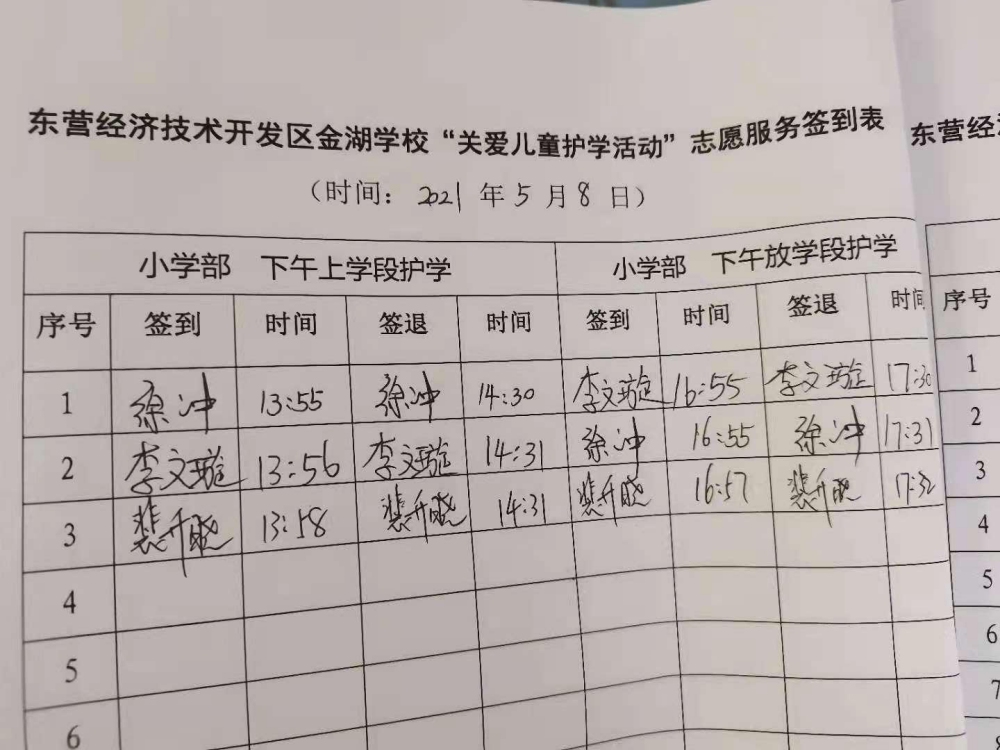 东营经济技术开发区金湖学校“关爱儿童护学活动”志愿服务签到表
（时间：2021年5月8日）
小学部 下午上学段护学 小学部 下午放学段护学
序号 签到 时间 签退 时间 签到 时间 签退 时间
1 徐冲 13:55 徐冲 14:30 李文璇 16:55 李文璇 17:30
2 李文璇 13:56 李文璇 14:31 徐冲 16:55 徐冲 17:31
3 裴升晓 13:58 裴升晓 14:31 裴升晓 16:57 裴升晓 17:32
4
5
6
东营经济
序号
1
2
3
4
5
6
7